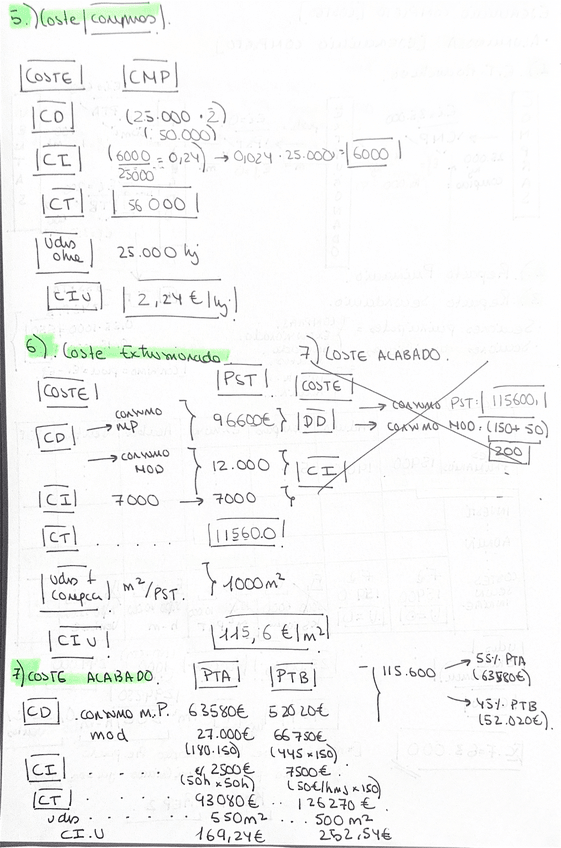 5.) Coste |compras|.
|COSTE| |CMP|
|CD| (25.000 · 2)
(50.000)
|CI| (6000/25000 = 0,24) → 0,024 · 25.000 = |6000|
|CT| |56 000|
|Uds
25.000 kg
|CIU| |2,24 €/kg|
6). Coste Extusionado
|COSTE| |PST|
|CD| → consumo MP } 96600€ }
→ consumo MOD } 12.000
|CI| 7000 → 7000
|CT| . . . . . |115600|
|uds t
m²/PST. } 1000m²
|CIU| |115,6 €/m²|
7) COSTE ACABADO.
|COSTE|
|DD| → consumo PST: |115600|
→ consumo MOD: (150+50)
|200|
|CI|
7) COSTE ACABADO. |PTA| |PTB|
|CD| . consumo m.p. 63580€ 52020€
mod 27.000€ 66750€
(180.150) (445x150)
|CI| . . . . 2500€ 7500€.
(50h x 50h) (50€/hm x 150)
|CT| . . . . . 93080€ . . 126270€.
uds . . . . . 550m² . . . 500 m²
CI.U 169,24€ 252,54€
115.600 → 55% PTA
(63580€)
→ 45% PTB
(52.020€).